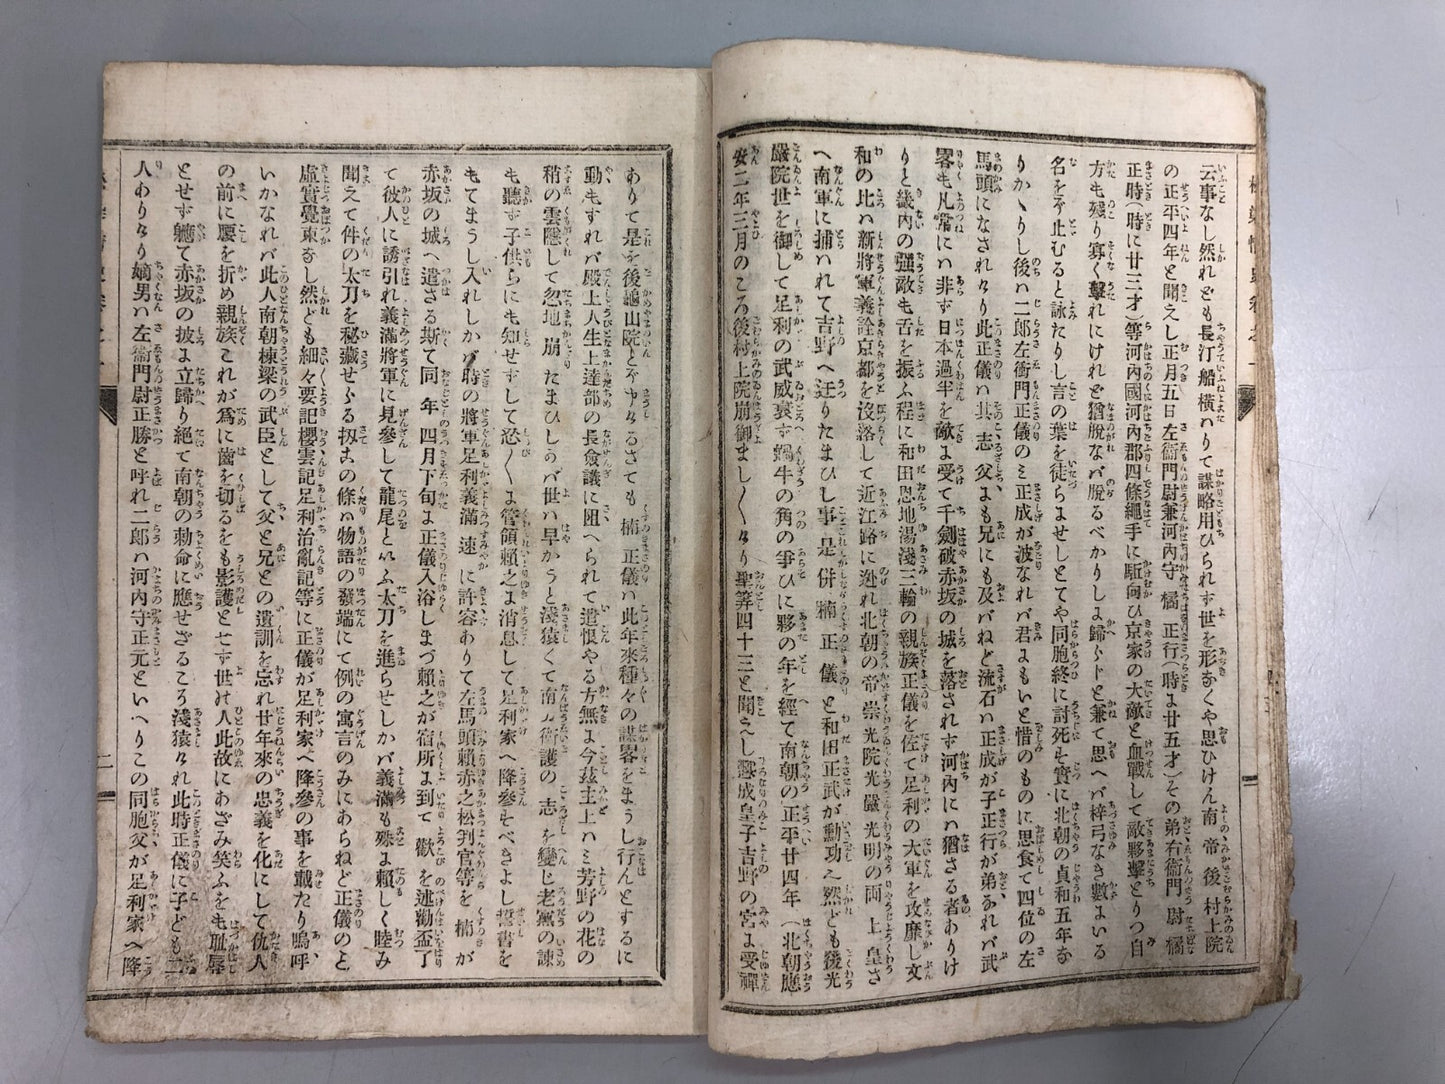 云事なし然れども長汀船横ハりて謀略用ひられず世を形なくや思ひけん南帝後村上院
の正平四年と聞えし正月五日左衞門尉兼河内守橘正行(時よ廿五才)その弟右衞門尉橘
正時(時に廿三才)等河内國河内郡四條繩手に駈向ひ京家の大敵と血戰して敵夥撃とりつ自
方も殘り寡く擊れにけれど猶脱なバ脱るべかりしよ歸らじと兼て思へバ梓弓なき數よいる
名をぞ止むると詠たりし言の葉を徒らませしとてや同胞終に討死を實に北朝の貞和五年な
りかゝりし後ハ二郎左衞門正儀のミ正成が波なれバ君よもいと惜のものに思食て四位の左
馬頭になされけり此正儀ハ其志父よも兄にも及バねど流石ハ正成が子正行が弟なれバ武
畧も凡常にハ非ず日本過半を敵よ受て千劔破赤坂の城を落されず河内にハ猶さる者ありけ
りと畿内の强敵も舌を振ふ程に和田恩地湯淺三輪の親族正儀を佐て足利の大軍を攻靡し文
和の比ハ新將軍義詮京都を沒落して近江路に迯れ北朝の帝崇光院光嚴光明の両上皇さ
へ南軍に捕ハれて吉野へ迁りたまひし事是併楠正儀と和田正武が勳功之然ども後光
嚴院世を御して足利の武威衰ず蝸牛の角の爭ひに夥の年を經て南朝の正平廿四年(北朝應
安二年三月のころ後村上院崩御ましゝけり聖筭四十三と聞えし熈成皇子吉野の宮よ受禪
ありて是を後龜山院とぞ申けるさても楠正儀ハ此年來種々の謀畧をまうし行んとするに
動もすれバ殿上人生上達部の長僉議に囲へられて遣恨やる方無よ今玆主上ハミ芳野の花の
稍の雲隱して忽地崩たまひしかバ世ハ早かうと淺猿くて南方衛護の志を變じ老黨の諫
も聽ず子供らにも知せずして忍ゝよ管領賴之よ消息して足利家へ降參すべきよし誓書を
もてまうし入れしかバ時の將軍足利義滿速に許容ありて左馬頭賴赤之松判官等を楠が
赤坂の城へ遣さる斯て同年四月下旬よ正儀入浴しまづ賴之が宿所よ到て歡を述勸盃了
て彼人に誘引れ義滿將軍に見參して龍尾といふ太刀を進らせしかバ義滿も殊よ賴しく睦み
聞えて件の太刀を秘藏せらる扨まの條ハ物語の發端にて例の寓言のみにあらねど正儀のと
虛實覺束なし然ども細々要記櫻雲記足利治亂記等に正儀が足利家へ降參の事を載たり嗚呼
いかなれバ此人南朝棟梁の武臣として父と兄との遺訓を忘れ廿年來の忠義を化にして仇人
の前に腰を折め親族これが爲に齒を切るをも影護とせず世の人此故にあざみ笑ふをも耻辱
とせず軈て赤坂の披よ立歸り絶て南朝の勅命に應せざるころ淺猿けれ此時正儀に子ども二
人ありけり嫡男ハ左衞門尉正勝と呼れ二郎ハ河内守正元といへりこの同胞父が足利家へ降
二